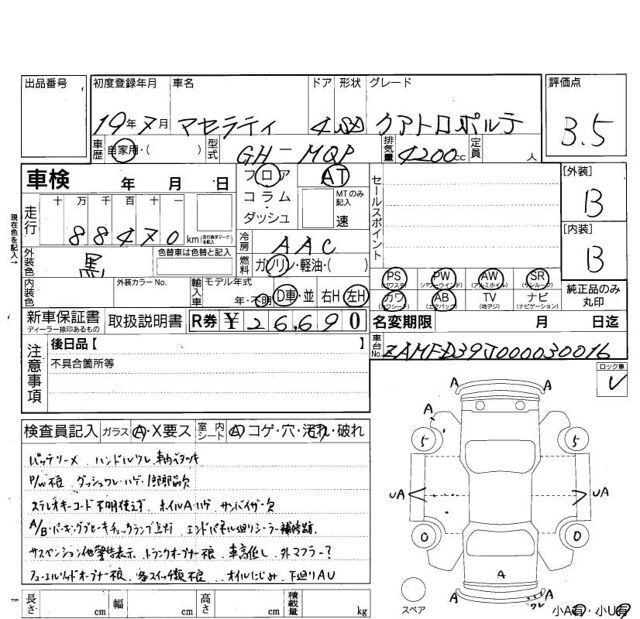 出品番号 初度登録年月 車名 ドア 形状 グレード 評価点
19年7月 マセラティ 4 クアトロポルテ 3.5
車歴 自家用・( ) 型式 GH-MQP 排気量 4200cc 定員 人
車検 年 月 日 フロア AT セールスポイント [外装] B
走行 十 万 千 百 十 88470 km コラム・ダッシュ MTのみ記入 速
現在色を記入→
外装色 黒 色替車は色替と記入 冷房 AAC [内装] B
燃料 ガソリン・軽油・( )
内装色 外装カラーNo. 輸入車 モデル年式 年・不明 D車・並 右H 左H
PS PW AW SR
カワ AB TV ナビ 純正品のみ丸印
新車保証書 取扱説明書 R券 ¥26,690 名変期限 月 日迄
ディーラー捺印あるもの
注意事項 後日品【 】 車台No. ZAMFD39J000030016
不具合箇所等
ロック車 レ
検査員記入 ガラス A・X要ス 室内シート A コゲ・穴・汚れ・破れ
バッテリーメ ハンドルスレ
P/W不良
ステレオキーコード不明 ホイルA・ハゲ サンバイザー欠
A/B・パーキングブレーキチェックランプ点灯 エンドパネル廻りシーラー補修跡
サスペンション他警告表示 トランクオープナー不良 車高低し 外マフラー?
フューエルリッドオープナー不良 各スイッチ類不良 オイルにじみ 下廻りAU
長さ cm 幅 cm 高さ cm 積載量 kg
A A
A
5 5
UA UA
0 0
A
A
スペア 小A有・小U有